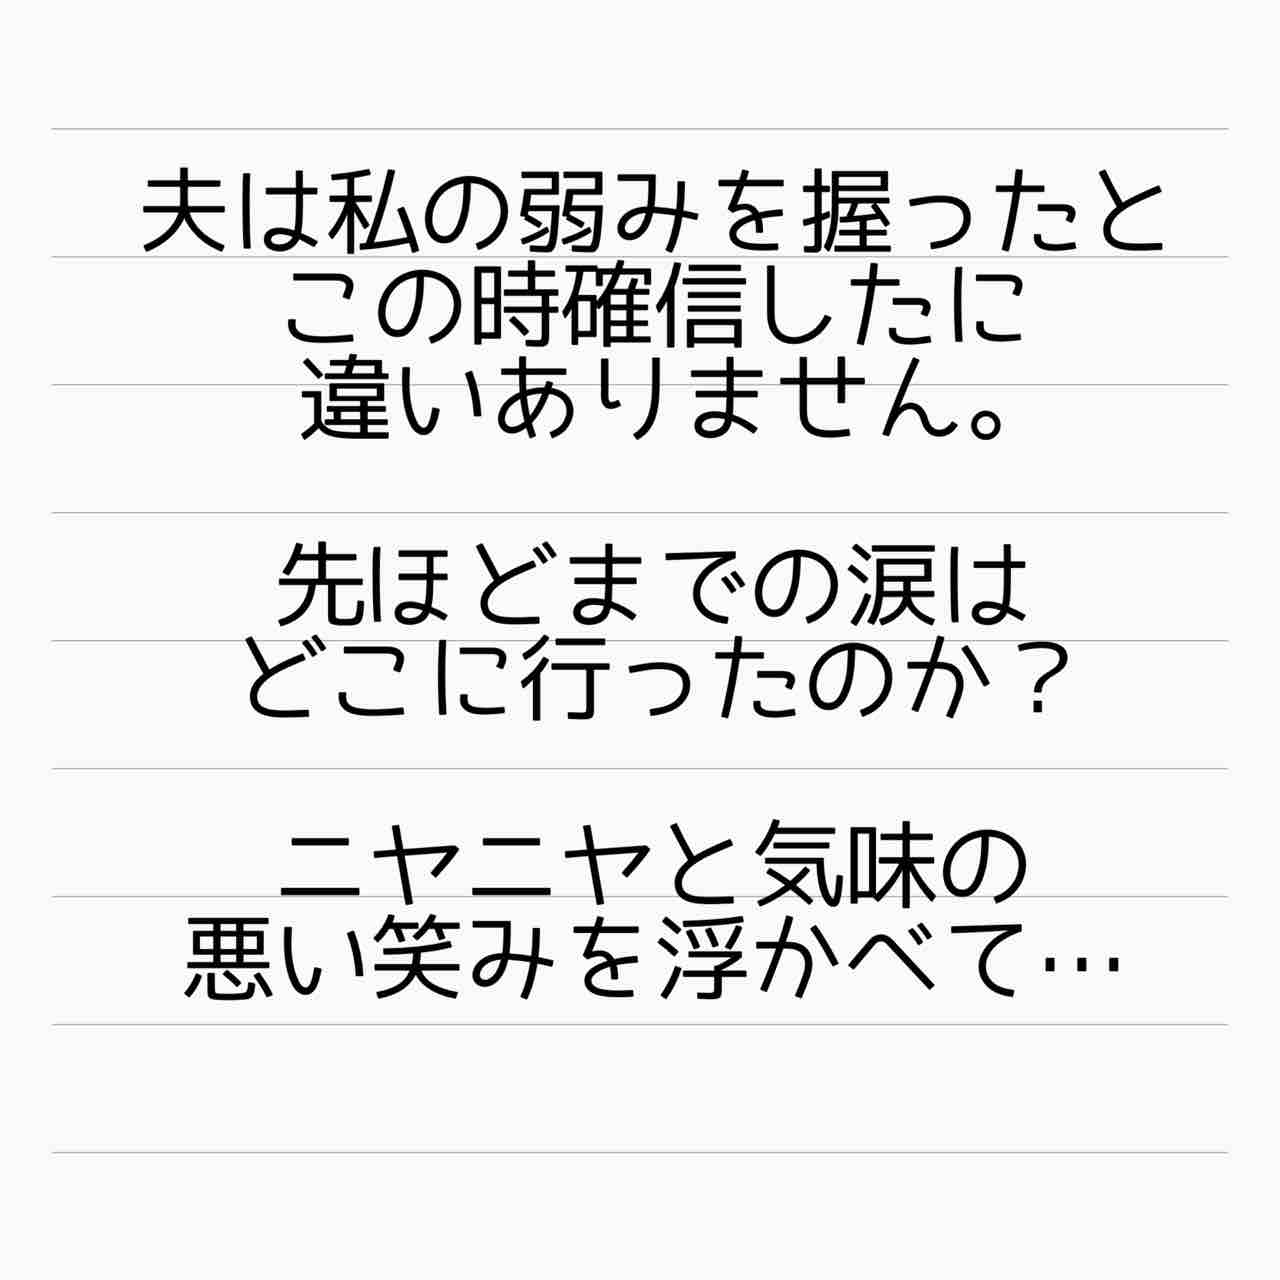 夫は私の弱みを握ったと
この時確信したに
違いありません。
先ほどまでの涙は
どこに行ったのか？
ニヤニヤと気味の
悪い笑みを浮かべて…